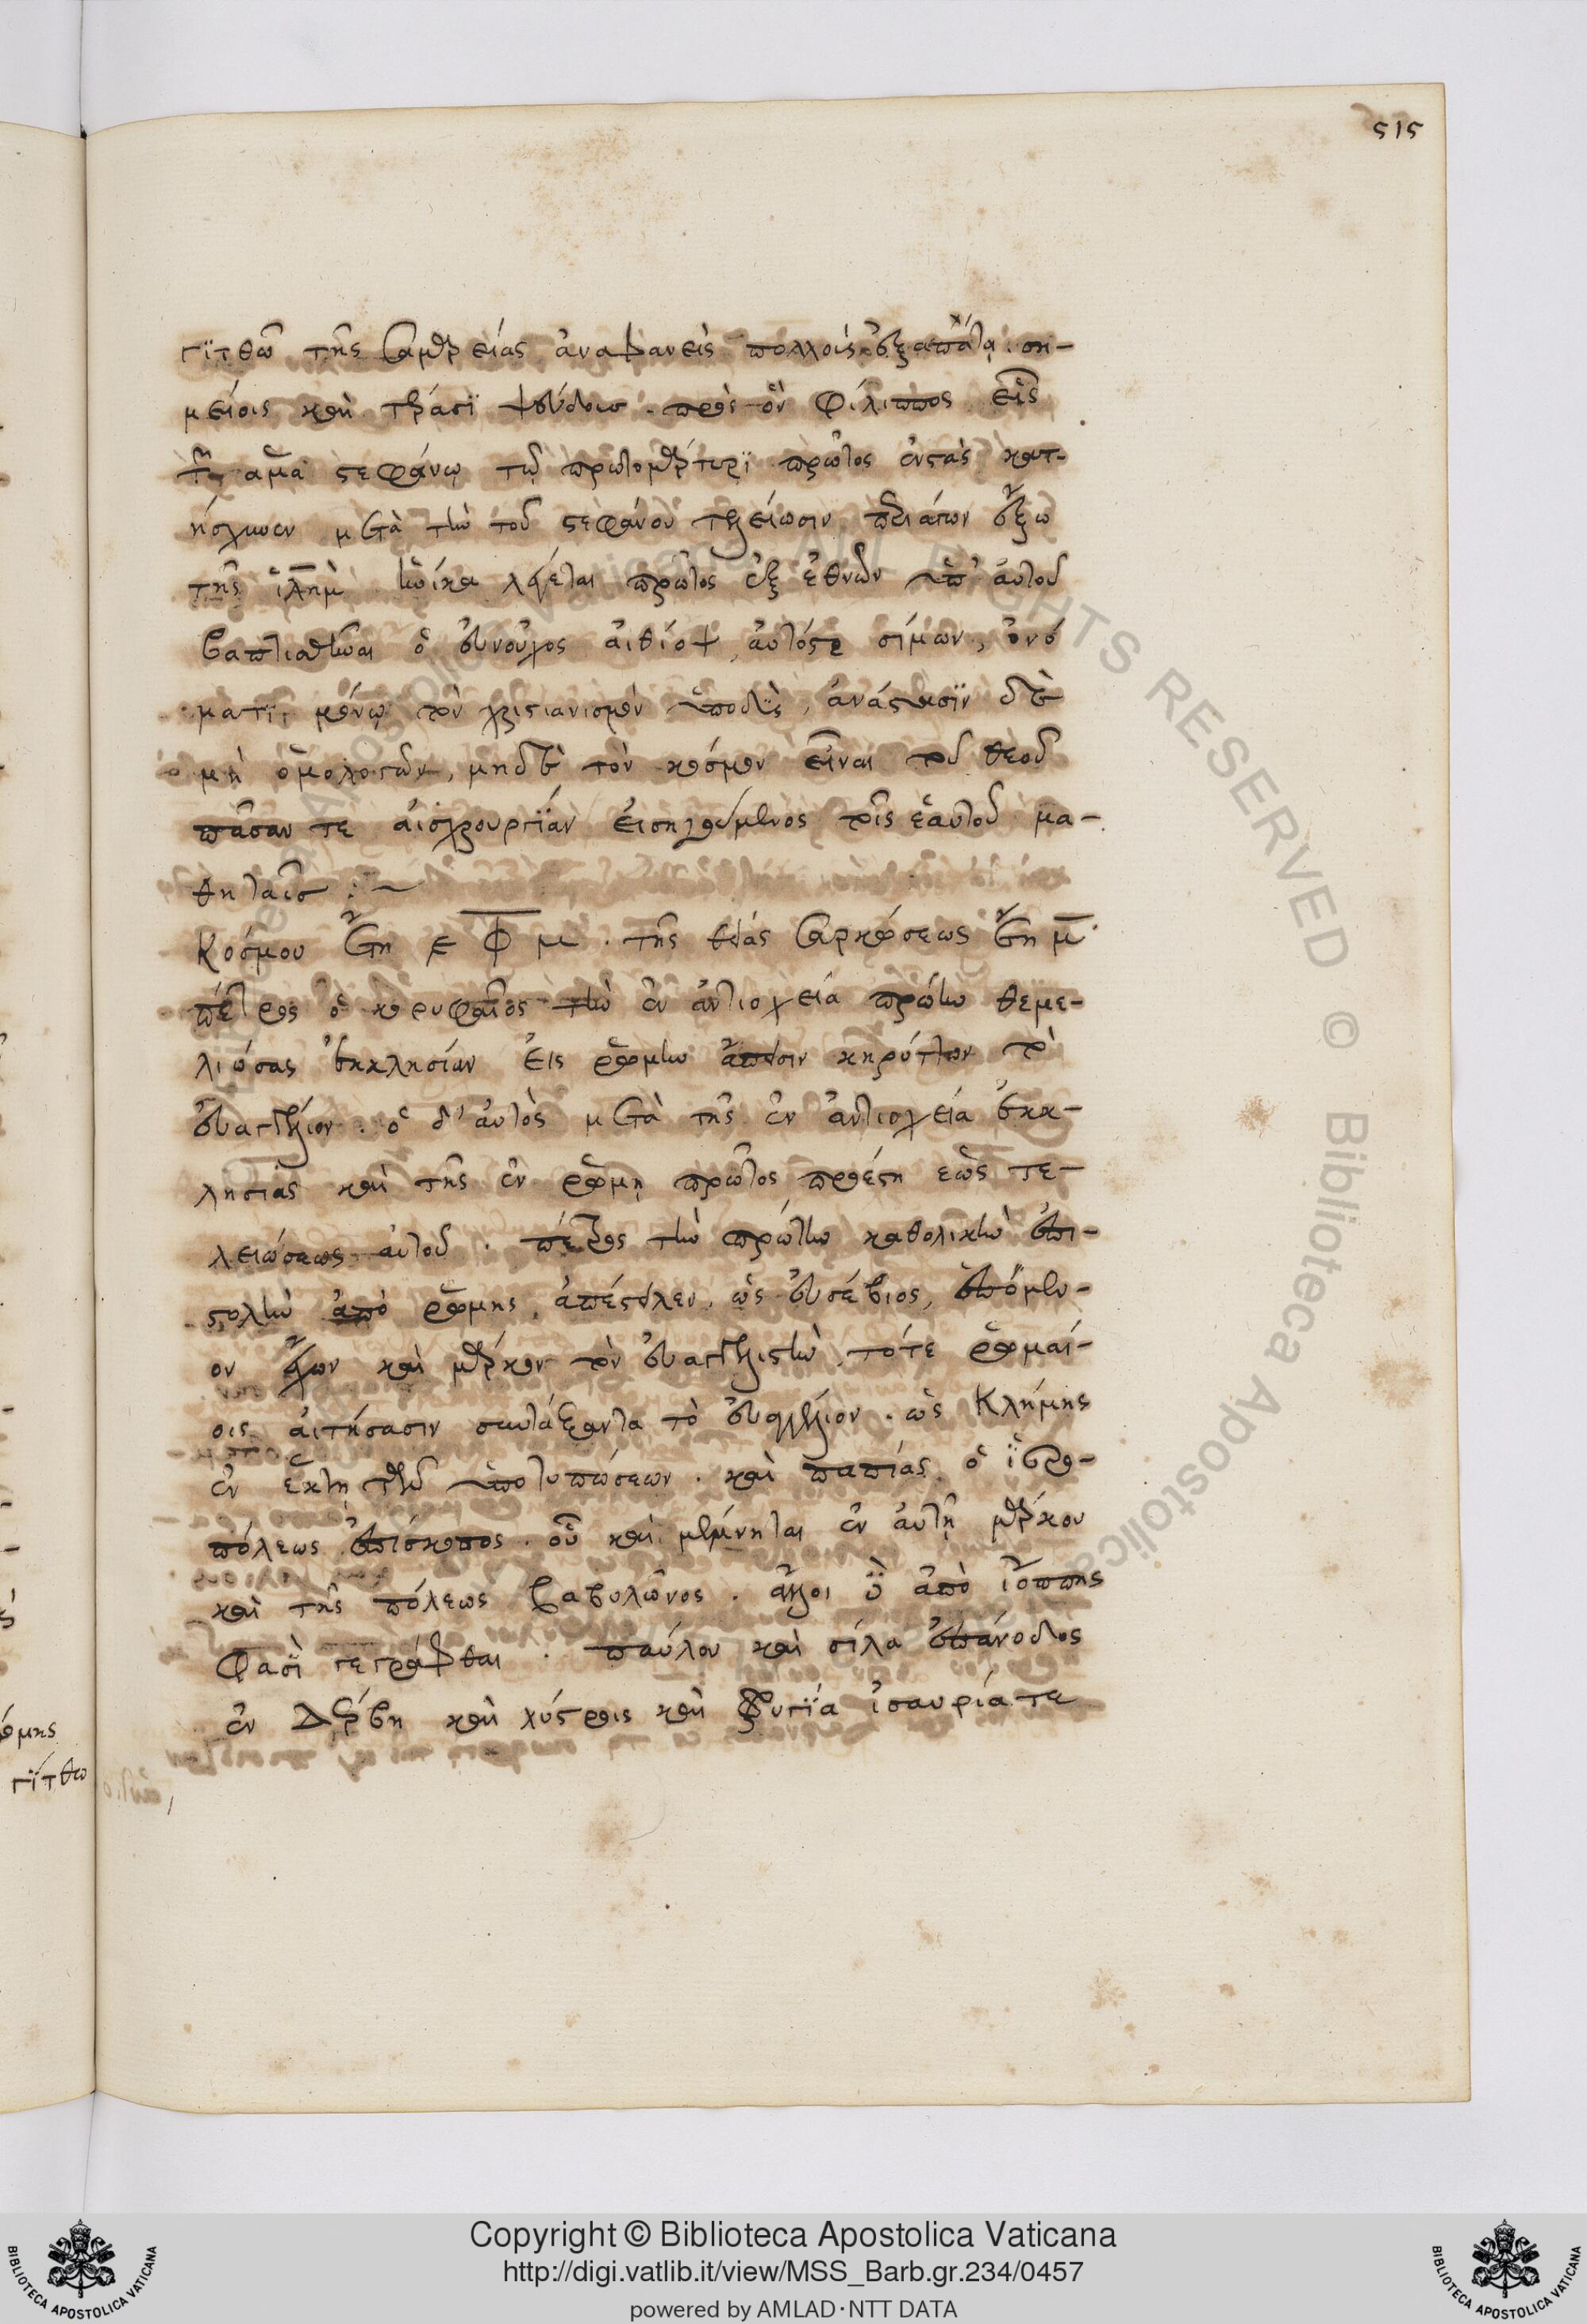 515
γϊτθῶ τῆς σαμαρείας ἀναφανεὶς πολλοὺς ἐξαπατᾶ ση-
μείοις καὶ τέρασϊ ψεύδεσι. πρὸς ὃν Φίλιππος εἷς
τῶν ἅμα στεφάνῳ τῷ πρωτομάρτυρϊ πρῶτος ἐνστὰς κατ-
ήσχυνεν μετὰ τὴν τοῦ στεφάνου τελείωσιν περιάγων ἔξω
τῆς ἱλημ ἡνίκα λέγεται πρῶτος ἐξ ἐθνῶν ὑπ' αὐτοῦ
βαπτισθῆναι ὁ εὐνοῦχος αἰθίοψ, αὐτός τε σίμων, ὀνό
ματϊ μόνῳ τὸν χριστιανισμὸν ὑποδὺς, ἀνάστασϊν δὲ
μὴ ὁμολογῶν, μηδὲ τὸν κόσμον εἶναι τοῦ θεοῦ
πᾶσαν τε αἰσχρουργϊάν εἰσηγούμενος τοῖς ἑαυτοῦ μα-
θηταῖς :~
Κοσμου ἔτη ͵ε φ μ . τῆς θείας σαρκώσεως ἔτη μ
πέτρος ὁ κορυφαῖος τὴν ἐν ἀντιοχεία πρώτην θεμε-
λιώσας ἐκκλησίαν εἰς ρώμην ἄπεισιν κηρύττων τὸ
εὐαγγέλιον. ὁ δ' αὐτὸς μετὰ τῆς ἐν ἀντιοχεία ἐκκ-
λησίας καὶ τῆς ἐν ρώμῃ πρῶτος προέστη ἕως τε-
λειώσεως αὐτοῦ . πέτρος τὴν πρώτην καθολικὴν ἐπι-
στολὴν ἀπὸ ρώμης ἀπέστειλεν, ὡς εὐσέβιος, ἑπόμεν-
ον ἔχων καὶ μάρκον τὸν εὐαγγελιστὴν, τότε ρωμαί-
οις αἰτήσασιν συντάξαντα τὸ εὐαγγέλιον. ὡς Κλήμης
ἐν ἕκτῃ τῶν ὑποτυπώσεων. καὶ παπίας ὁ ἱερα-
πόλεως ἐπίσκοπος. οὗ καὶ μέμνηται ἐν αὐτῇ μάρκου
καὶ τῆς πόλεως βαβυλῶνος. ἄλλοι δὲ ἀπὸ ἰόππης
φασῒ γεγράφθαι . παύλου καὶ σίλα ἐπάνοδος
ἐν Δέρβη καὶ λύστροις καὶ φρυγϊα ἰσαυρία τε